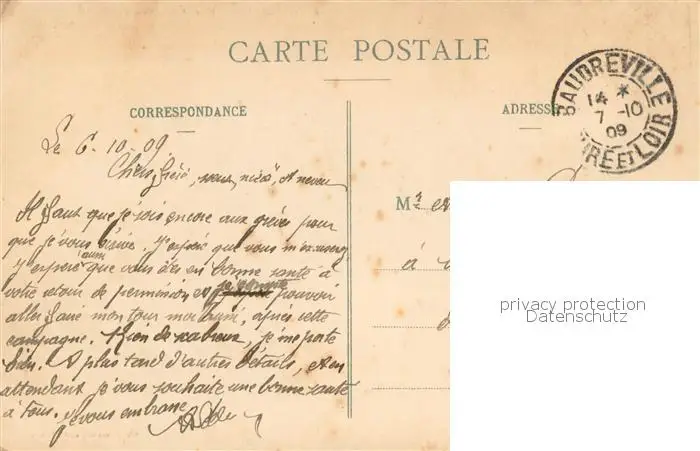 CARTE POSTALE
CORRESPONDANCE
ADRESSE
BAUDREVILLE
14 *
7 -10
09
EURE ET LOIR
Le 6-10-09
Chers frère, sœur, nièce, et neveu
Il faut que je sois encore aux pour
que je vous écrive. J'espère que vous m'excuserez
J'espère aussi que vous êtes en bonne santé à
votre retour de permission et je compte pouvoir
aller faire mon tour moi aussi, après cette
campagne. Rien de je me porte
bien. A plus tard d'autres détails, et en
attendant je vous souhaite une bonne santé
à tous. je vous embrasse
Mr et
à
privacy protection
Datenschutz